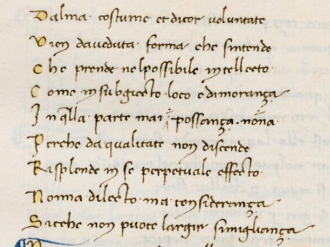 Dalma costume et dicor voluntate
Vien daveduta forma che sintende
Che prende nelpossibile intellecto
Come insubgiecto loco e dimoranza
In qlla parte mai possanza nona
Perche da qualitate non discende
Resplende in se perpetuale effecto
Nonna dilecto ma consideranza
Siche non puote largir simiglianza